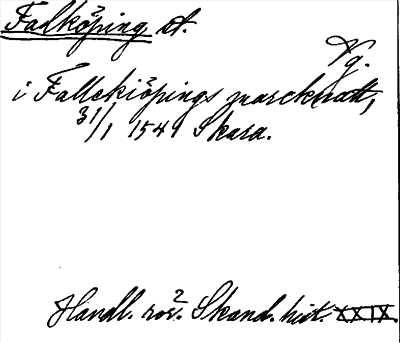 Falköping st.
Vg.
i Fallekiöpings marcknatt,
31/1 1541 Skara.
Handl. rör. Skand. hist. XXIX.